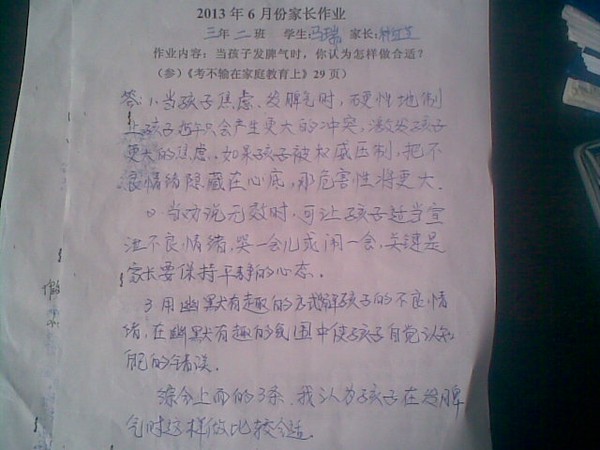 2013年6月份家长作业
三年二班 学生:马瑞 家长:
作业内容:当孩子发脾气时,你认为怎样做合适?
(参)《考不输在家庭教育上》29页)
答:1、当孩子焦虑、发脾气时,硬性地制
止孩子 只会产生更大的冲突,激发孩子
更大的焦虑.如果孩子被权威压制,把不
良情绪隐藏在心底,那危害性将更大.
2、当劝说无效时,可让孩子适当宣
泄不良情绪,哭一会儿或闹一会,关键是
家长要保持平静的心态.
3、用幽默有趣的方式 解孩子的不良情
绪,在幽默有趣的氛围中使孩子自觉认知
自己的错误.
综合上面的3条,我认为孩子在发脾
气时这样做比较合适.